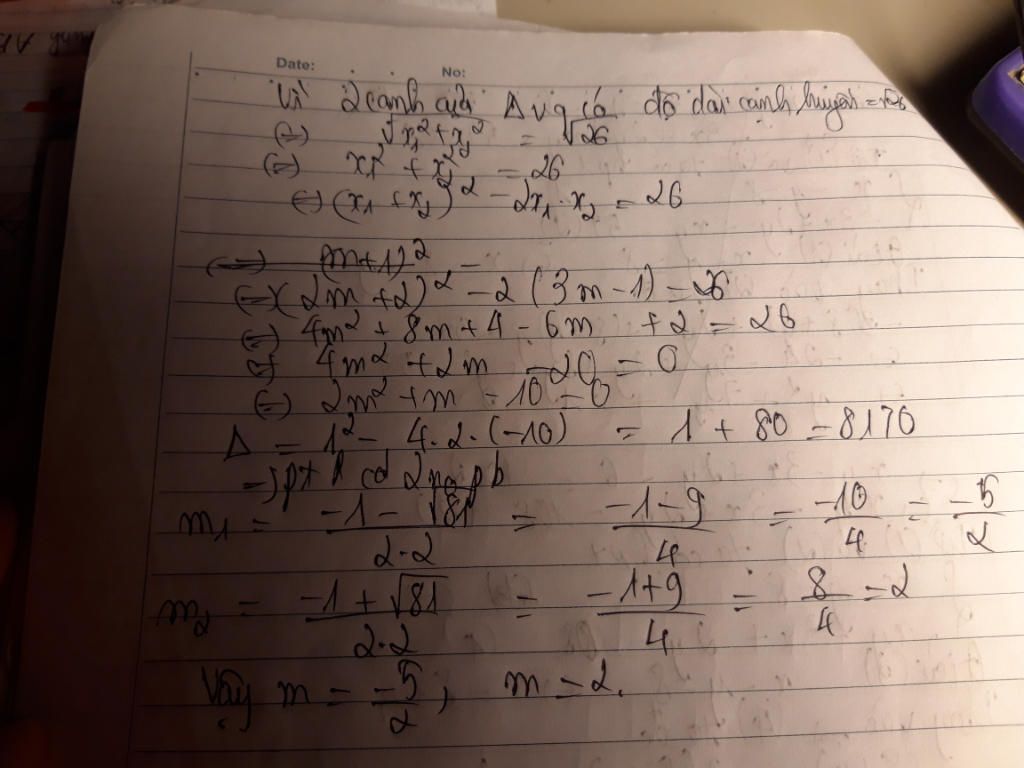 Date: No:
Vì 2 cạnh của Δ vg có độ dài cạnh huyền = √26
(=) √x₁² + x₂² = √26
(=) x₁² + x₂² = 26
(=) (x₁ + x₂)² - 2x₁ . x₂ = 26
(=) (m+1)² -
(=) (2m + 2)² - 2 (3m - 1) = 26
(=) 4m² + 8m + 4 - 6m + 2 = 26
(=) 4m² + 2m - 20 = 0
(=) 2m² + m - 10 = 0
Δ = 1² - 4.2.(-10) = 1 + 80 = 81 > 0
=) pt có 2 no pb
m₁ = -1 - √81 / 2.2 = -1 - 9 / 4 = -10 / 4 = -5 / 2
m₂ = -1 + √81 / 2.2 = -1 + 9 / 4 = 8 / 4 = 2
Vậy m = -5 / 2 ; m = 2.